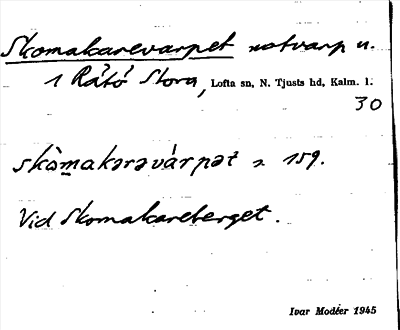 Skomakarevarpet notvarp n.
1 Råtö Stora, Lofta sn, N. Tjusts hd, Kalm. l.
30
skò̀makərəvárpət 2 159.
Vid Skomakareberget.
Ivar Modéer 1945